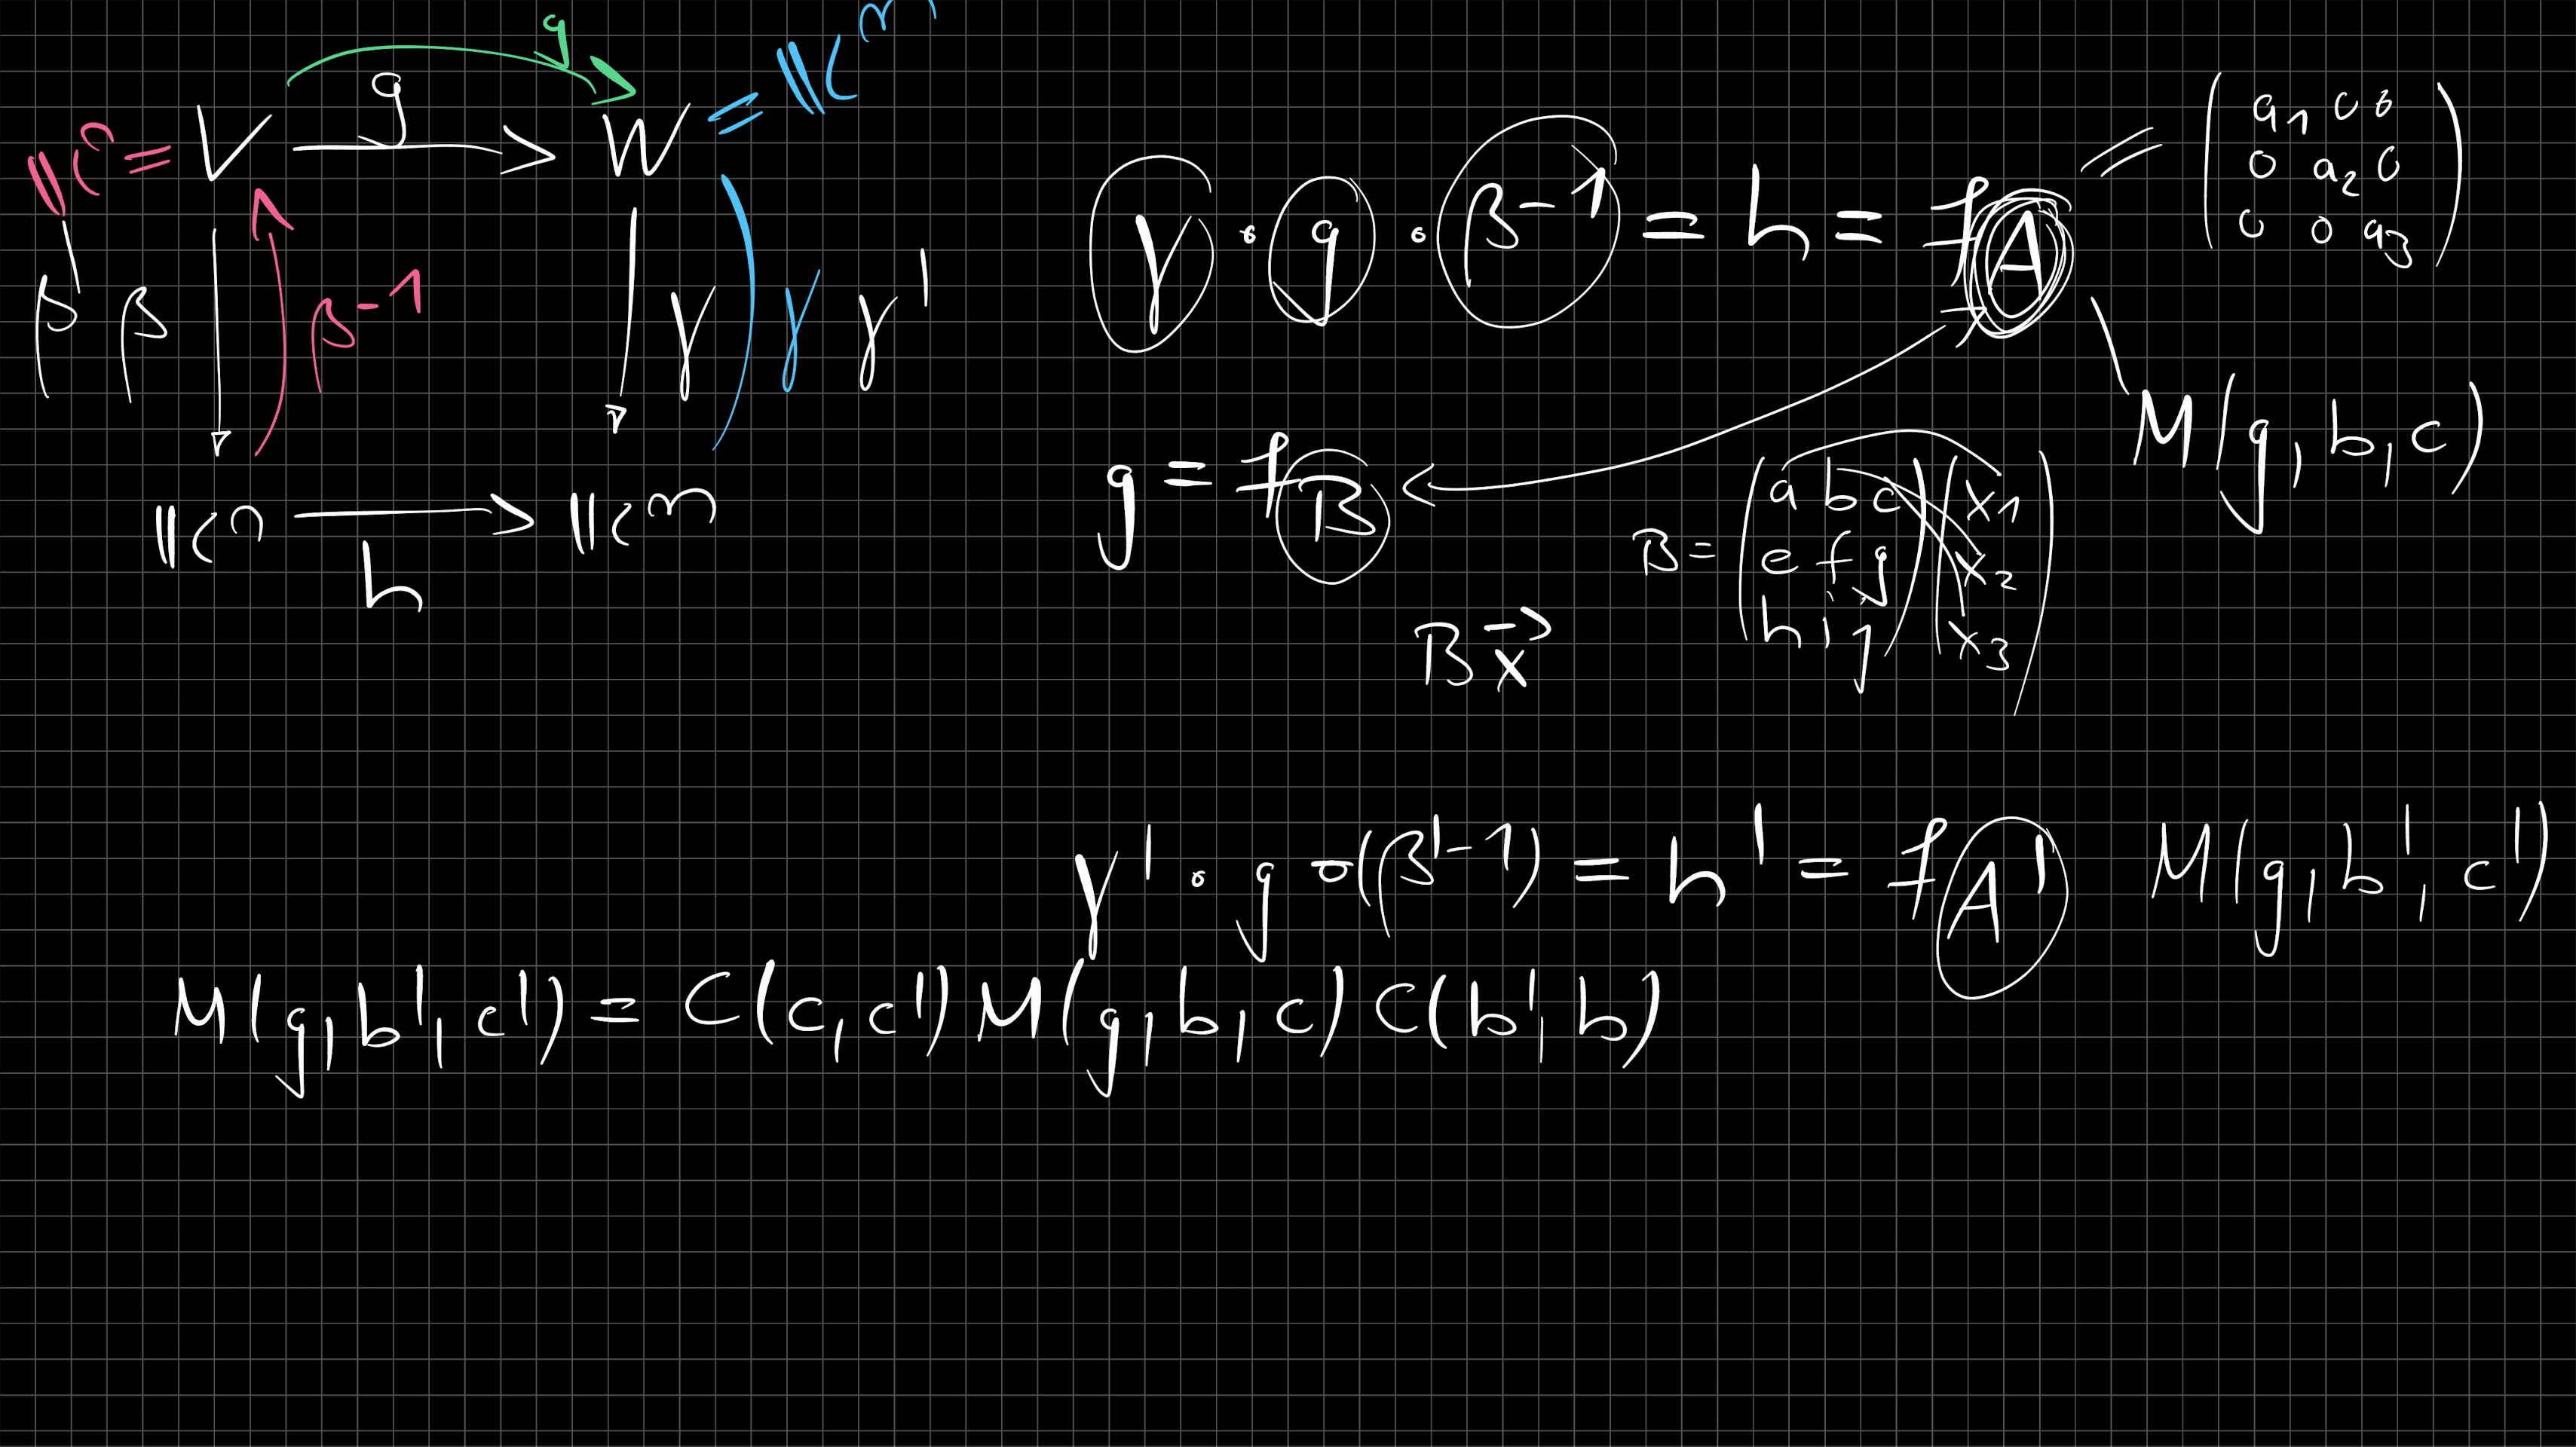 𝕂ⁿ = V —g→ W = 𝕂ᵐ
g
β' β β⁻¹ γ γ γ'
𝕂ⁿ —h→ 𝕂ᵐ
γ ∘ g ∘ β⁻¹ = h = f_A = ( a₁ 0 0
0 a₂ 0
0 0 a₃ )
M(g, b, c)
g = f_B
B = ( a b c
e f g
h i j ) ( x₁
x₂
x₃ )
Bx⃗
γ' ∘ g ∘ (β'⁻¹) = h' = f_A' M(g, b', c')
M(g, b', c') = C(c, c') M(g, b, c) C(b', b)